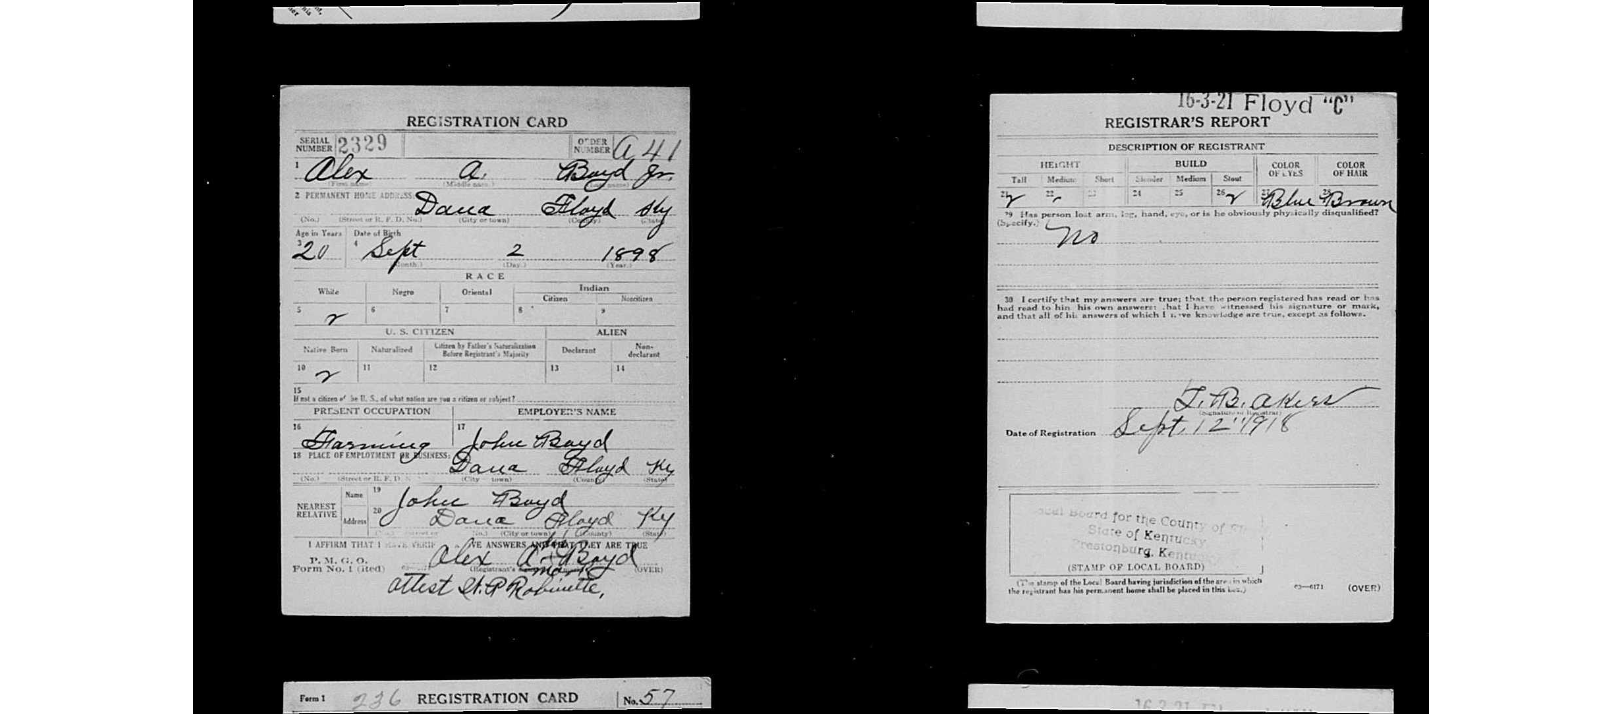 REGISTRATION CARD
SERIAL NUMBER 2329 ORDER NUMBER A 41
1 Alex A. Boyd Jr.
(First name) (Middle name) (Last name)
2 PERMANENT HOME ADDRESS: Dana Floyd Ky
(No.) (Street or R. F. D. No.) (City or town) (County) (State)
Age in Years Date of Birth
3 20 4 Sept 2 1898
(Month.) (Day.) (Year.)
RACE
White Negro Oriental Indian
Citizen Noncitizen
5 6 7 8 9
U. S. CITIZEN ALIEN
Native Born Naturalized Citizen by Father's Naturalization Before Registrant's Majority Declarant Non-declarant
10 11 12 13 14
15
If not a citizen of the U. S., of what nation are you a citizen or subject?
PRESENT OCCUPATION EMPLOYER'S NAME
16 Farming 17 John Boyd
18 PLACE OF EMPLOYMENT OR BUSINESS: Dana Floyd Ky
(No.) (Street or R. F. D. No.) (City or town) (County) (State)
NEAREST RELATIVE Name 19 John Boyd
Address 20 Dana Floyd Ky
(No.) (Street or R. F. D. No.) (City or town) (County) (State)
I AFFIRM THAT I HAVE VERIFIED ABOVE ANSWERS AND THAT THEY ARE TRUE
P. M. G. O.
Form No. 1 Alex A. his + mark Boyd
(Registrant's (OVER)
attest Robinette,
Form 1 236 REGISTRATION CARD No. 57
16-3-21 Floyd "C"
REGISTRAR'S REPORT
DESCRIPTION OF REGISTRANT
HEIGHT BUILD COLOR OF EYES COLOR OF HAIR
Tall Medium Short Slender Medium Stout
21 22 23 24 25 26 27 Blue 28 Brown
29 Has person lost arm, leg, hand, eye, or is he obviously physically disqualified?
(Specify.) No
30 I certify that my answers are true; that the person registered has read or has
had read to him his own answers; that I have witnessed his signature or mark,
and that all of his answers of which I have knowledge are true, except as follows.
T. B. Akers
(Signature of Registrar)
Date of Registration Sept. 12" 1918
Local Board for the County of
State of Kentucky
Prestonburg, Kentucky
(STAMP OF LOCAL BOARD)
(The stamp of the Local Board having jurisdiction of the area in which
the registrant has his permanent home shall be placed in this box.)
03—6171 (OVER)